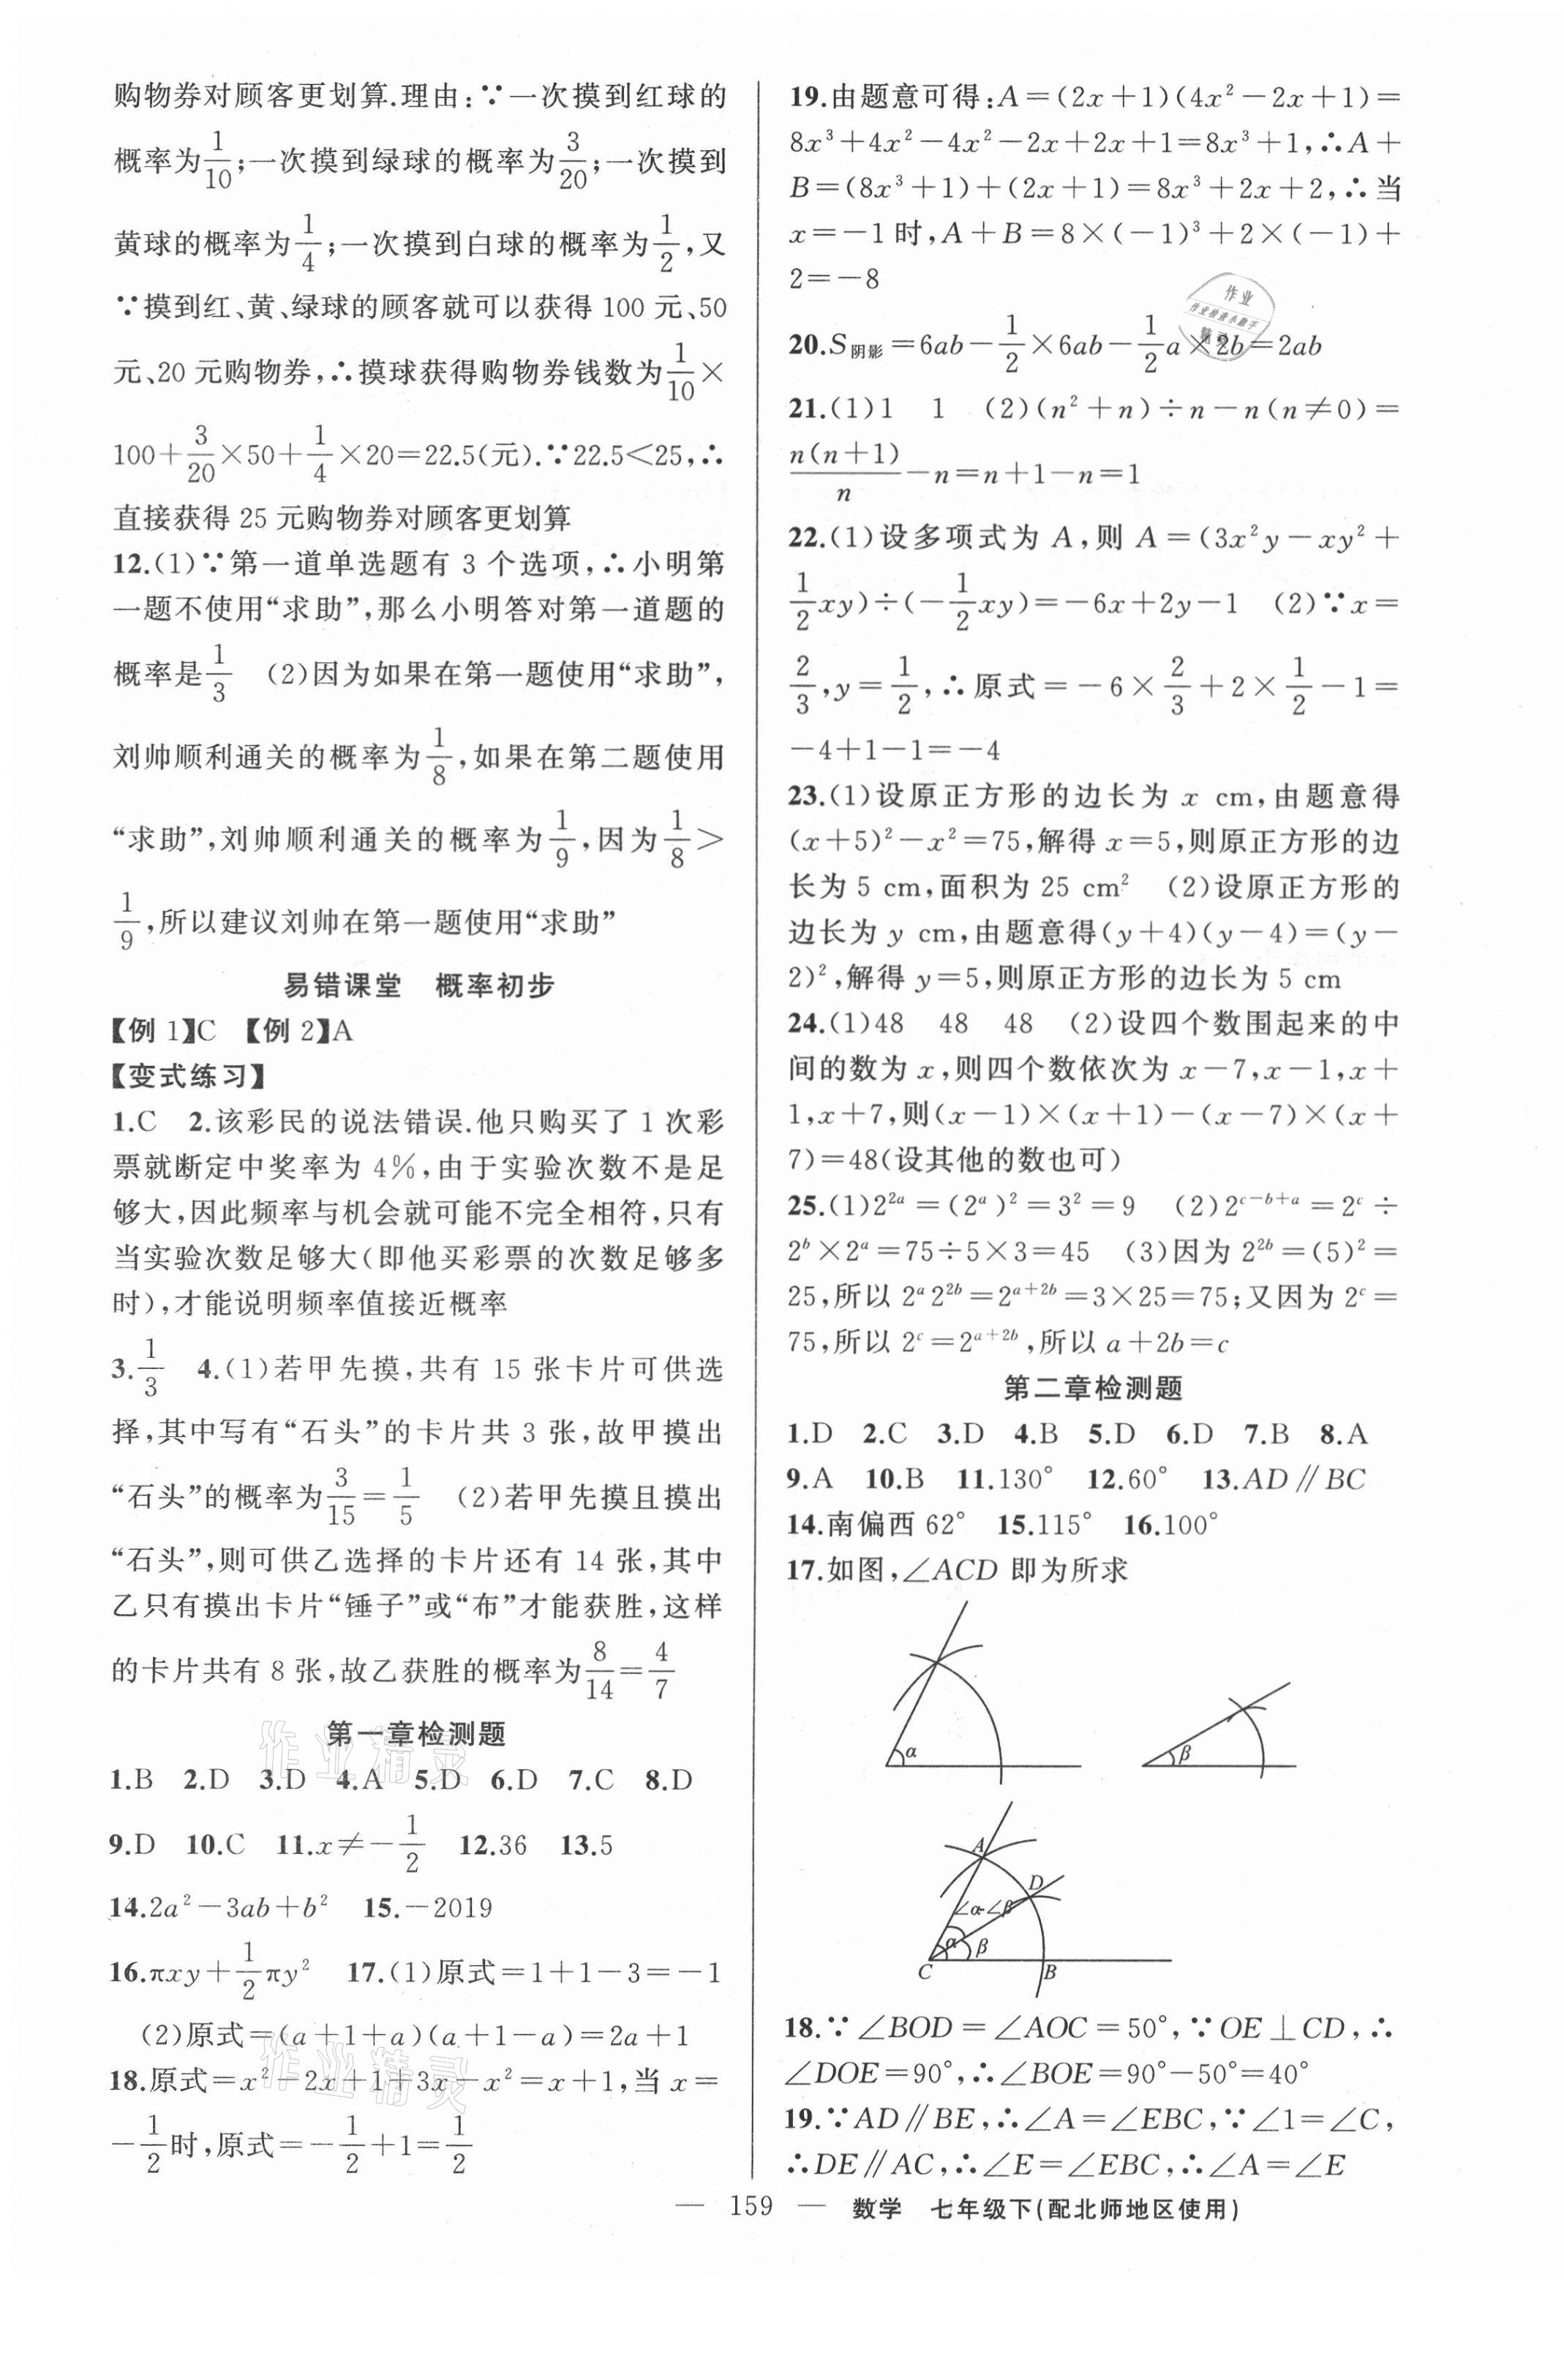 购物券对顾客更划算.理由:∵一次摸到红球的
概率为1/10;一次摸到绿球的概率为3/20;一次摸到
黄球的概率为1/4;一次摸到白球的概率为1/2,又
∵摸到红、黄、绿球的顾客就可以获得 100 元、50
元、20 元购物券,∴摸球获得购物券钱数为1/10×
100+3/20×50+1/4×20=22.5(元).∵22.5<25,∴
直接获得 25 元购物券对顾客更划算
12.(1)∵第一道单选题有 3 个选项,∴小明第
一题不使用“求助”,那么小明答对第一道题的
概率是1/3 (2)因为如果在第一题使用“求助”,
刘帅顺利通关的概率为1/8,如果在第二题使用
“求助”,刘帅顺利通关的概率为1/9,因为1/8>
1/9,所以建议刘帅在第一题使用“求助”
易错课堂 概率初步
【例 1】C 【例 2】A
【变式练习】
1.C 2.该彩民的说法错误.他只购买了 1 次彩
票就断定中奖率为 4%,由于实验次数不是足
够大,因此频率与机会就可能不完全相符,只有
当实验次数足够大(即他买彩票的次数足够多
时),才能说明频率值接近概率
3.1/3 4.(1)若甲先摸,共有 15 张卡片可供选
择,其中写有“石头”的卡片共 3 张,故甲摸出
“石头”的概率为3/15=1/5 (2)若甲先摸且摸出
“石头”,则可供乙选择的卡片还有 14 张,其中
乙只有摸出卡片“锤子”或“布”才能获胜,这样
的卡片共有 8 张,故乙获胜的概率为8/14=4/7
第一章检测题
1.B 2.D 3.D 4.A 5.D 6.D 7.C 8.D
9.D 10.C 11.x≠-1/2 12.36 13.5
14.2a²-3ab+b² 15.-2019
16.πxy+1/2πy² 17.(1)原式=1+1-3=-1
(2)原式=(a+1+a)(a+1-a)=2a+1
18.原式=x²-2x+1+3x-x²=x+1,当 x=
-1/2时,原式=-1/2+1=1/2
作业精灵
作业精灵
19.由题意可得:A=(2x+1)(4x²-2x+1)=
8x³+4x²-4x²-2x+2x+1=8x³+1,∴A+
B=(8x³+1)+(2x+1)=8x³+2x+2,∴当
x=-1 时,A+B=8×(-1)³+2×(-1)+
2=-8
作业
20.S阴影=6ab-1/2×6ab-1/2a×2b=2ab
21.(1)1 1 (2)(n²+n)÷n-n(n≠0)=
n(n+1)/n-n=n+1-n=1
22.(1)设多项式为 A,则 A=(3x²y-xy²+
1/2xy)÷(-1/2xy)=-6x+2y-1 (2)∵x=
2/3,y=1/2,∴原式=-6×2/3+2×1/2-1=
-4+1-1=-4
23.(1)设原正方形的边长为 x cm,由题意得
(x+5)²-x²=75,解得 x=5,则原正方形的边
长为 5 cm,面积为 25 cm² (2)设原正方形的
边长为 y cm,由题意得(y+4)(y-4)=(y-
2)²,解得 y=5,则原正方形的边长为 5 cm
24.(1)48 48 48 (2)设四个数围起来的中
间的数为 x,则四个数依次为 x-7,x-1,x+
1,x+7,则(x-1)×(x+1)-(x-7)×(x+
7)=48(设其他的数也可)
25.(1)2^{2a}=(2^a)²=3²=9 (2)2^{c-b+a}=2^c÷
2^b×2^a=75÷5×3=45 (3)因为 2^{2b}=(5)²=
25,所以 2^a2^{2b}=2^{a+2b}=3×25=75;又因为 2^c=
75,所以 2^c=2^{a+2b},所以 a+2b=c
第二章检测题
1.D 2.C 3.D 4.B 5.D 6.D 7.B 8.A
9.A 10.B 11.130° 12.60° 13.AD∥BC
14.南偏西 62° 15.115° 16.100°
17.如图,∠ACD 即为所求
α
β
A
D
∠α-∠β
α β
C B
18.∵∠BOD=∠AOC=50°,∵OE⊥CD,∴
∠DOE=90°,∴∠BOE=90°-50°=40°
19.∵AD∥BE,∴∠A=∠EBC,∵∠1=∠C,
∴DE∥AC,∴∠E=∠EBC,∴∠A=∠E
— 159 — 数学 七年级下(配北师地区使用)